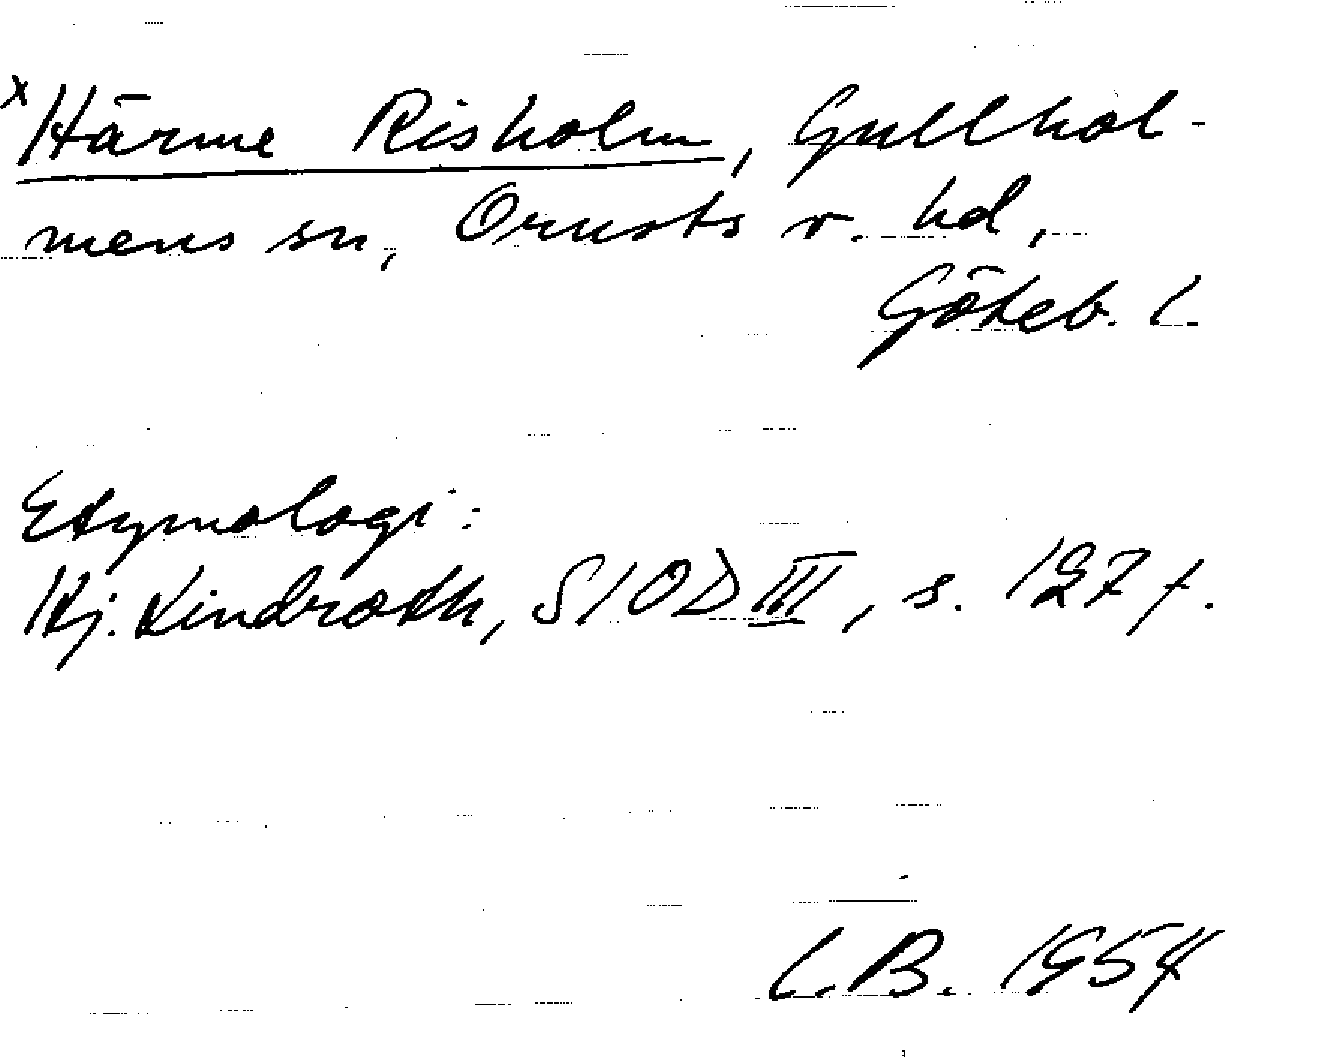 x Härme Risholm, Gullhol-
mens sn, Orusts v. hd,
Göteb. l.
Etymologi:
Hj. Lindroth, SIOD III, s. 127 f.
L.B. 1954